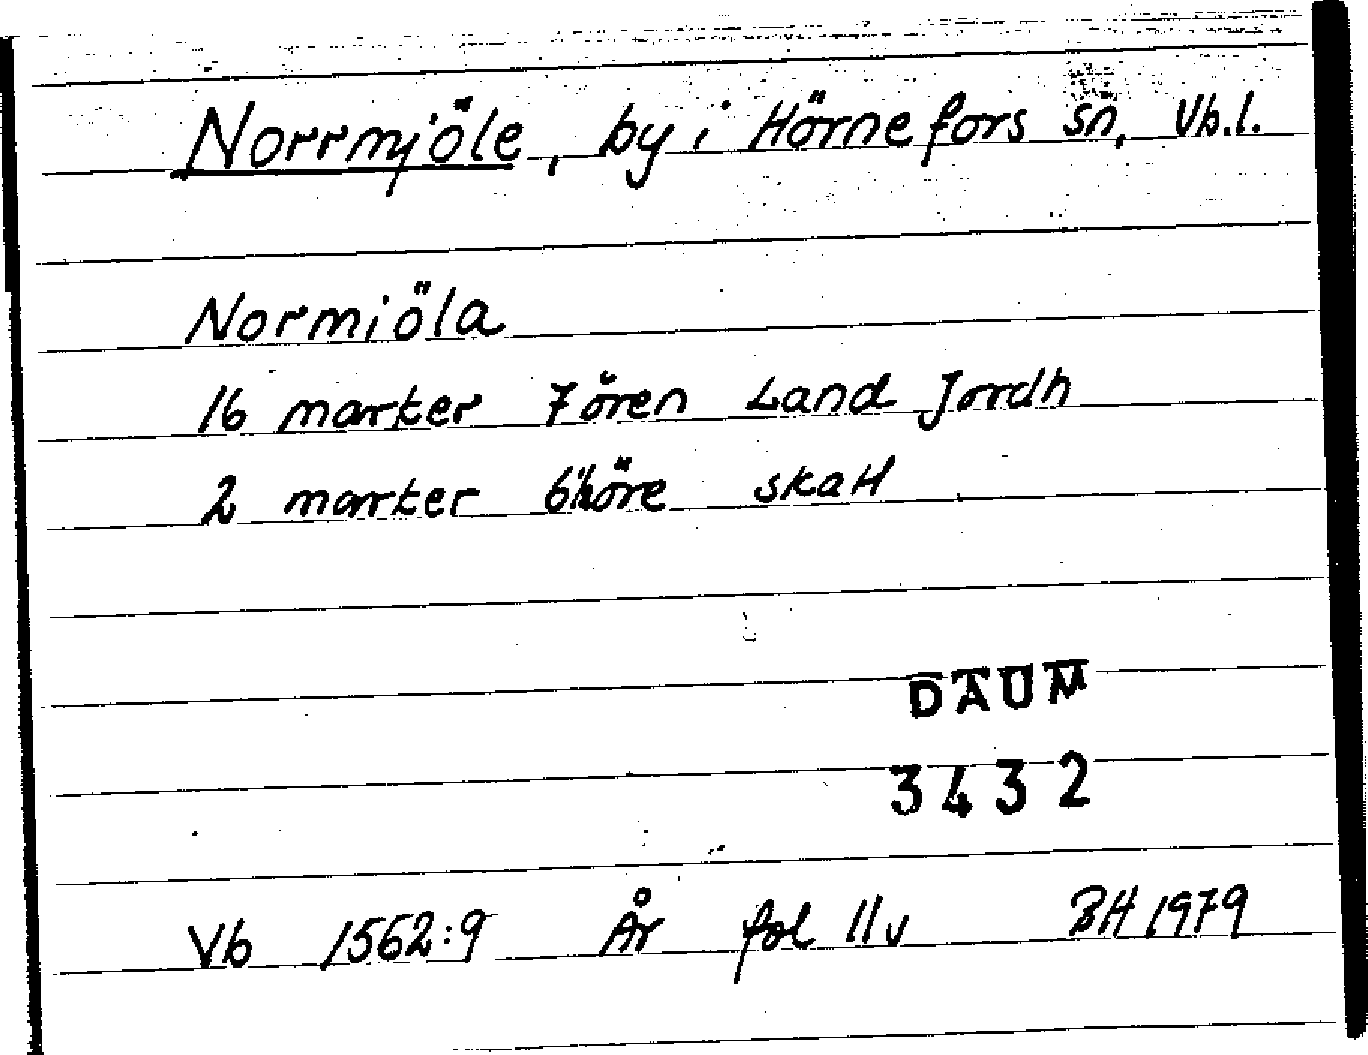 Norrmjöle, by i Hörnefors sn, Vb.l.
Normiöla
16 marker 7 ören Land Jordh
2 marker öre skatt
DAUM
3432
Vb 1562:9 År fol 11v BH 1979